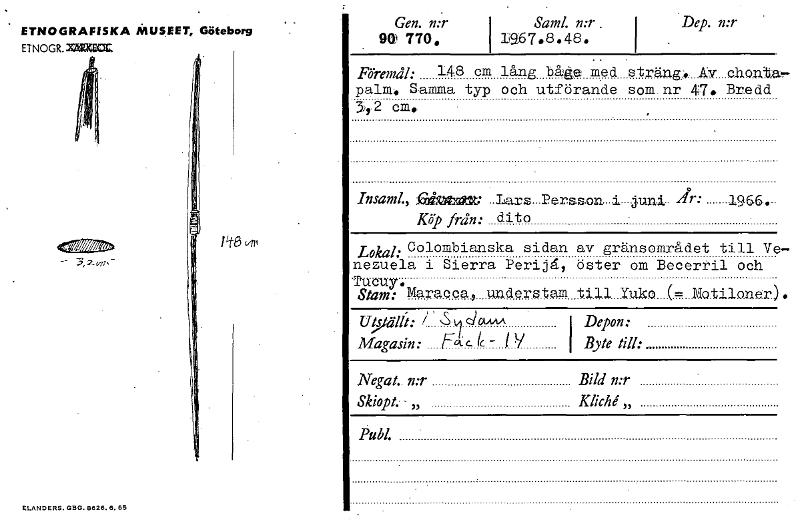 ETNOGRAFISKA MUSEET, Göteborg
ETNOGR.
148 cm
3,2 cm
ELANDERS. GBG. 8626. 6. 65
Gen. n:r Saml. n:r Dep. n:r
90 770. 1967.8.48.
Föremål: 148 cm lång båge med sträng. Av chonta-
palm. Samma typ och utförande som nr 47. Bredd
3,2 cm.
Insaml., Gåva av: Lars Persson i juni År: 1966.
Köp från: dito
Lokal: Colombianska sidan av gränsområdet till Ve-
nezuela i Sierra Perijá, öster om Becerril och
Tucuy.
Stam: Maracca, understam till Yuko (= Motiloner).
Utställt: i Sydam Depon:
Magasin: Fack-14 Byte till:
Negat. n:r Bild n:r
Skiopt. „ Kliché „
Publ.